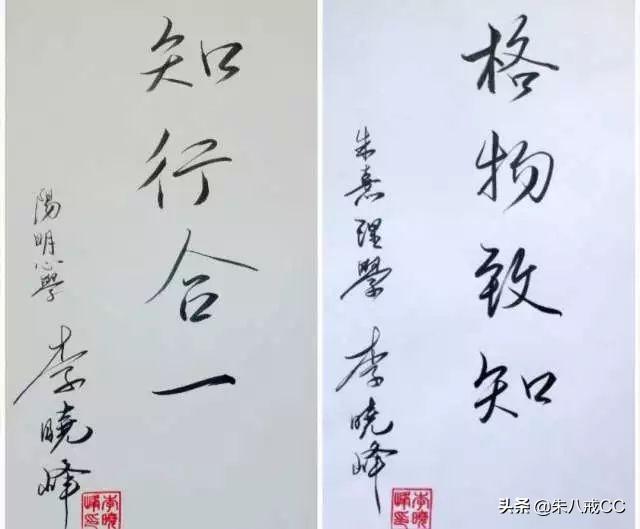 知行合一
陽明心學
李曉峰
李曉峰印
格物致知
朱熹理學
李曉峰
李曉峰印
头条 @朱八戒CC